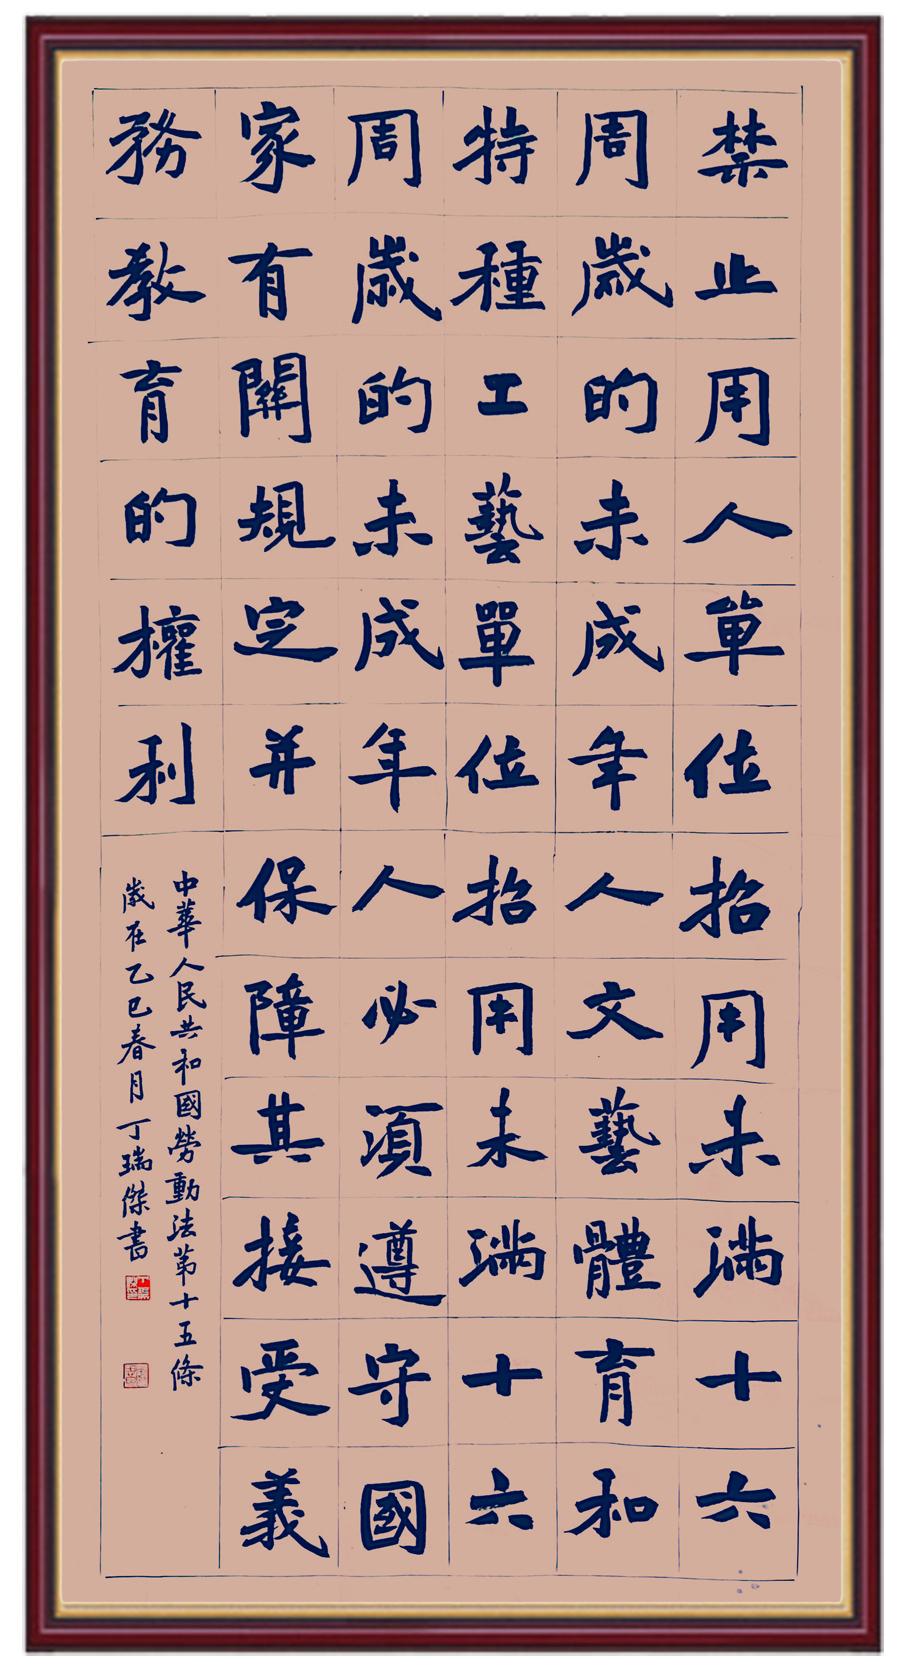 禁止用人單位招用未滿十六
周歲的未成年人文藝體育和
特種工藝單位招用未滿十六
周歲的未成年人必須遵守國
家有關規定并保障其接受義
務教育的權利
中華人民共和國勞動法第十五條
歲在乙巳春月丁瑞傑書